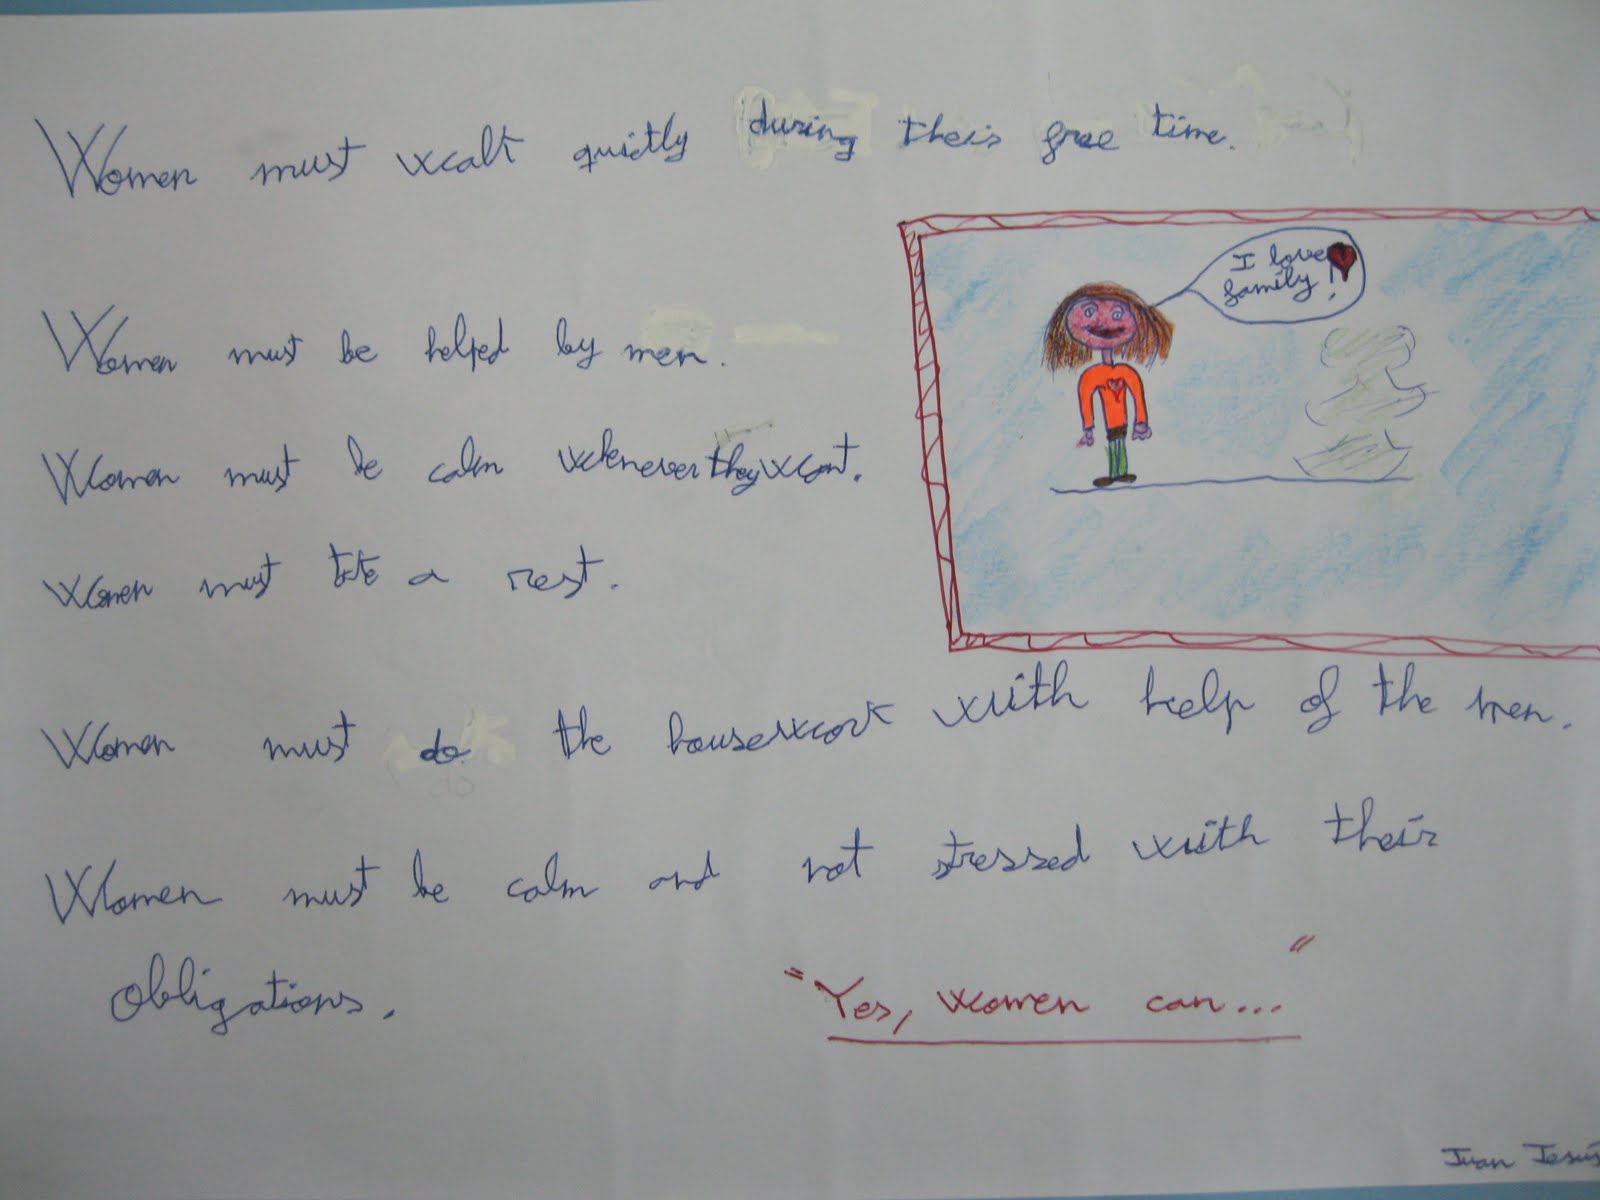 Women must walk quietly during their free time.
I love
family!
Women must be helped by men.
Women must be calm whenever they want.
Women must take a rest.
Women must do the housework with help of the men.
Women must be calm and not stressed with their
obligations.
"Yes, women can..."
Juan Jesús